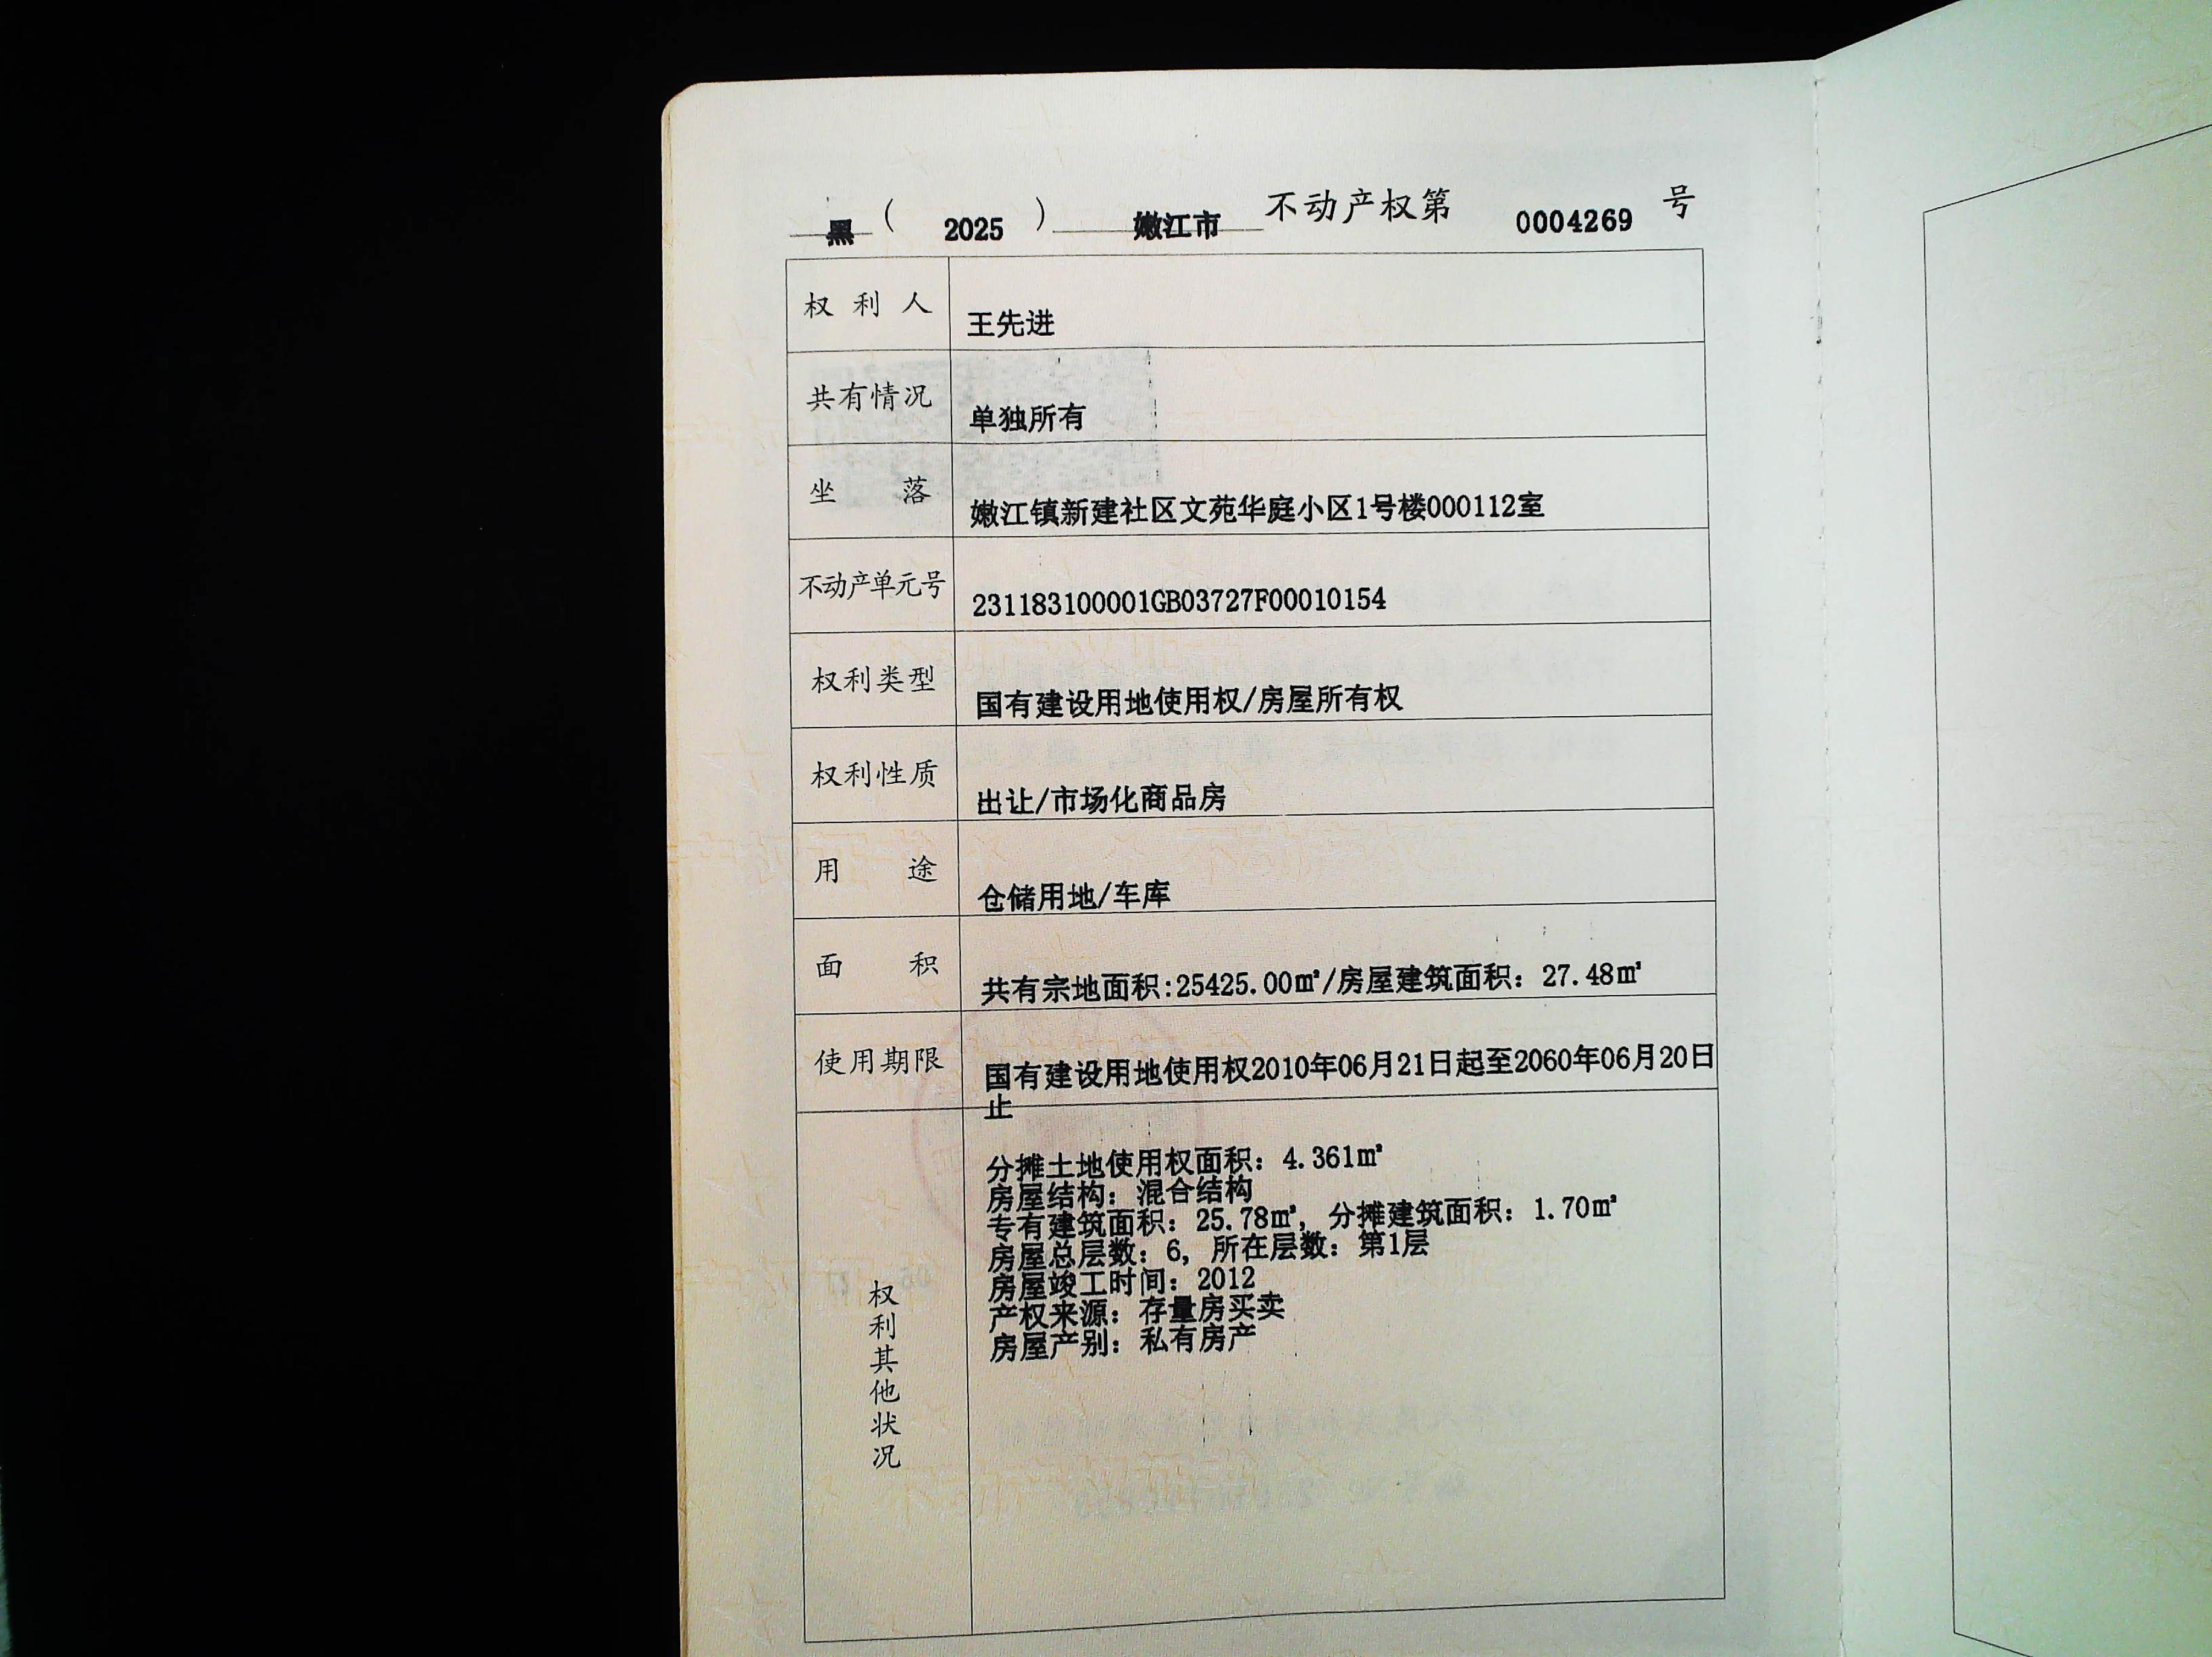 黑（2025）嫩江市不动产权第0004269号
权利人 王先进
共有情况 单独所有
坐落 嫩江镇新建社区文苑华庭小区1号楼000112室
不动产单元号 231183100001GB03727F00010154
权利类型 国有建设用地使用权/房屋所有权
权利性质 出让/市场化商品房
用途 仓储用地/车库
面积 共有宗地面积:25425.00㎡/房屋建筑面积：27.48㎡
使用期限 国有建设用地使用权2010年06月21日起至2060年06月20日
止
权利其他状况
分摊土地使用权面积：4.361㎡
房屋结构：混合结构
专有建筑面积：25.78㎡，分摊建筑面积：1.70㎡
房屋总层数：6，所在层数：第1层
房屋竣工时间：2012
产权来源：存量房买卖
房屋产别：私有房产